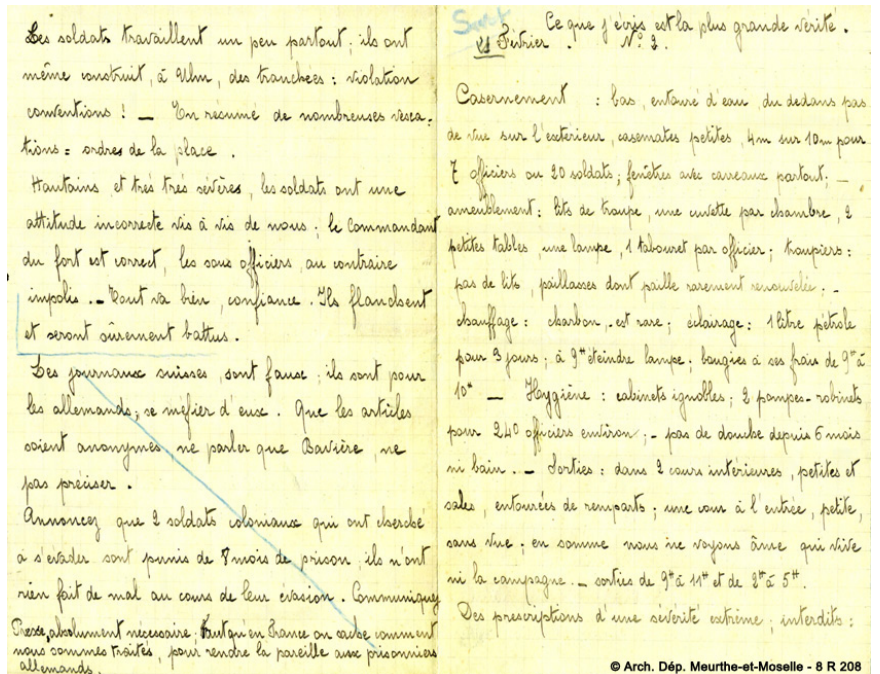 Les soldats travaillent un peu partout ; ils ont
même construit, à Ulm, des tranchées : violation
conventions ! — En résumé de nombreuses vexa-
tions = ordres de la place.
Hautains et très très sévères, les soldats ont une
attitude incorrecte vis à vis de nous ; le Commandant
du fort est correct, les sous officiers, au contraire
impolis. — Tout va bien, confiance. Ils flanchent
et seront sûrement battus.
Les journaux suisses, sont faux ; ils sont pour
les allemands, se méfier d'eux. Que les articles
soient anonymes ne parler que Bavière, ne
pas préciser.
Annoncez que 2 soldats coloniaux qui ont cherché
à s'évader sont punis de 8 mois de prison, ils n'ont
rien fait de mal au cours de leur évasion. Communiquez
Presse, absolument nécessaire ; faut qu'en France on sache comment
nous sommes traités, pour rendre la pareille aux prisonniers
allemands.
Ce que j'écris est la plus grande vérité.
Février. N° 2.
Casernement : bas, entouré d'eau, du dedans pas
de vue sur l'extérieur, casemates petites, 4m sur 10m pour
7 officiers ou 20 soldats ; fenêtres avec carreaux partout ; —
ameublement : lits de troupe, une cuvette par chambre, 2
petites tables, une lampe, 1 tabouret par officier ; troupiers :
pas de lits, paillasses dont paille rarement renouvelée ; -
chauffage : charbon, est rare ; éclairage : 1 litre pétrole
pour 3 jours ; à 9H éteindre lampe ; bougies à ses frais de 9H à
10H — Hygiène : cabinets ignobles ; 2 pompes-robinets
pour 240 officiers environ ; - pas de douche depuis 6 mois
ni bain. — Sorties : dans 2 cours intérieures, petites et
sales, entourées de remparts ; une cour à l'entrée, petite,
sans vue ; en somme nous ne voyons âme qui vive
ni la campagne. — sorties de 9H à 11H et de 2H à 5H.
Des prescriptions d'une sévérité extrême ; interdits :
© Arch. Dép. Meurthe-et-Moselle - 8 R 208